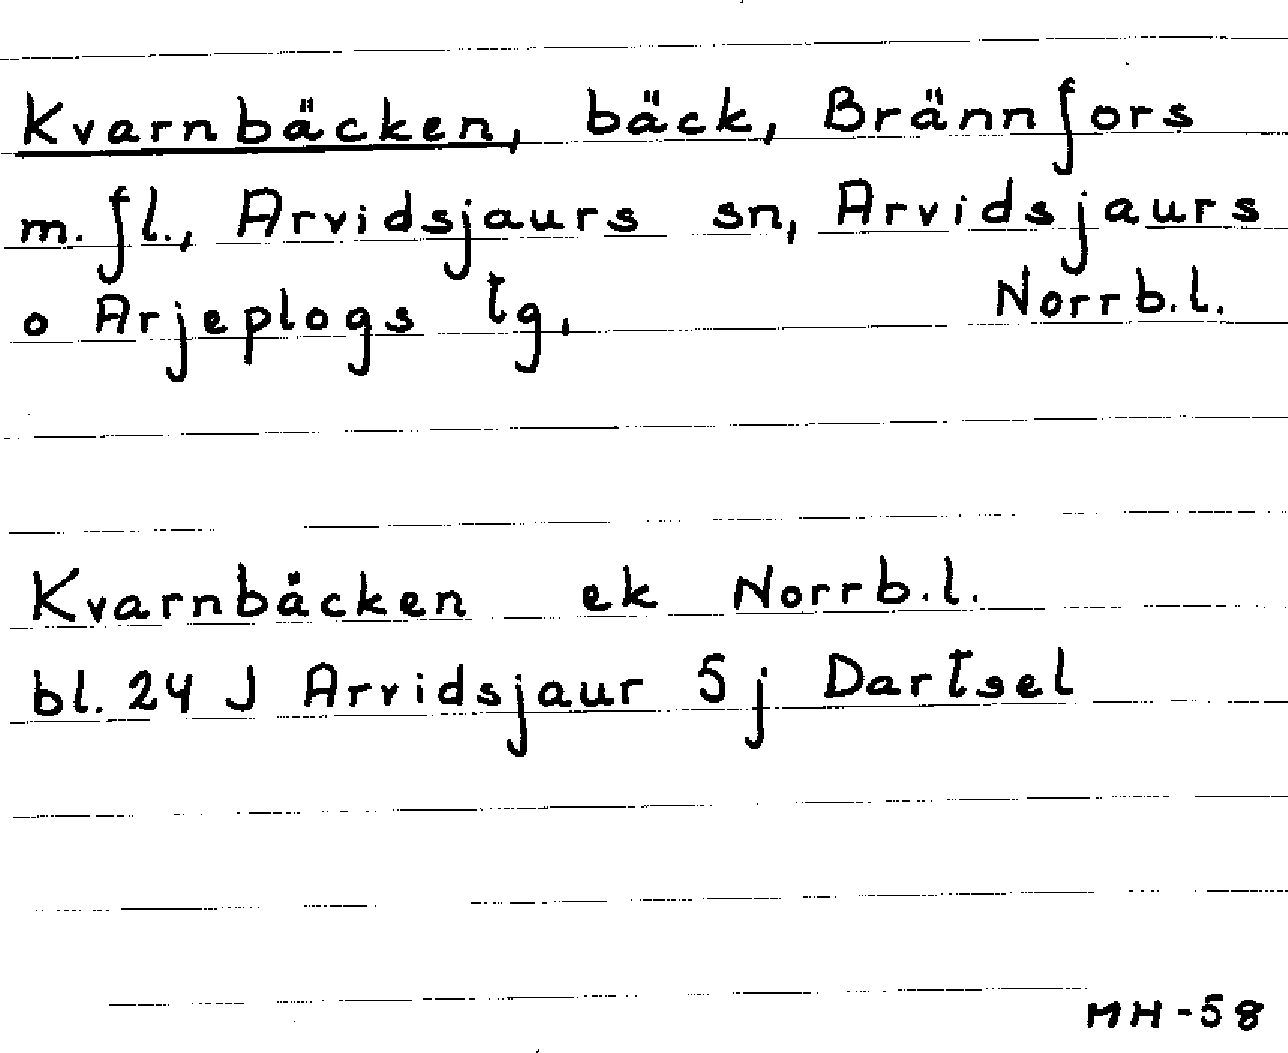 Kvarnbäcken, bäck, Brännfors
m. fl., Arvidsjaurs sn, Arvidsjaurs
o Arjeplogs tg. Norrb.l.
Kvarnbäcken ek Norrb.l.
bl. 24 J Arvidsjaur 5j Dartsel
MH-58